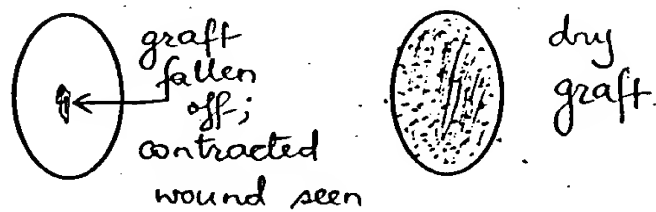 graft
fallen
off;
contracted
wound seen
dry
graft.